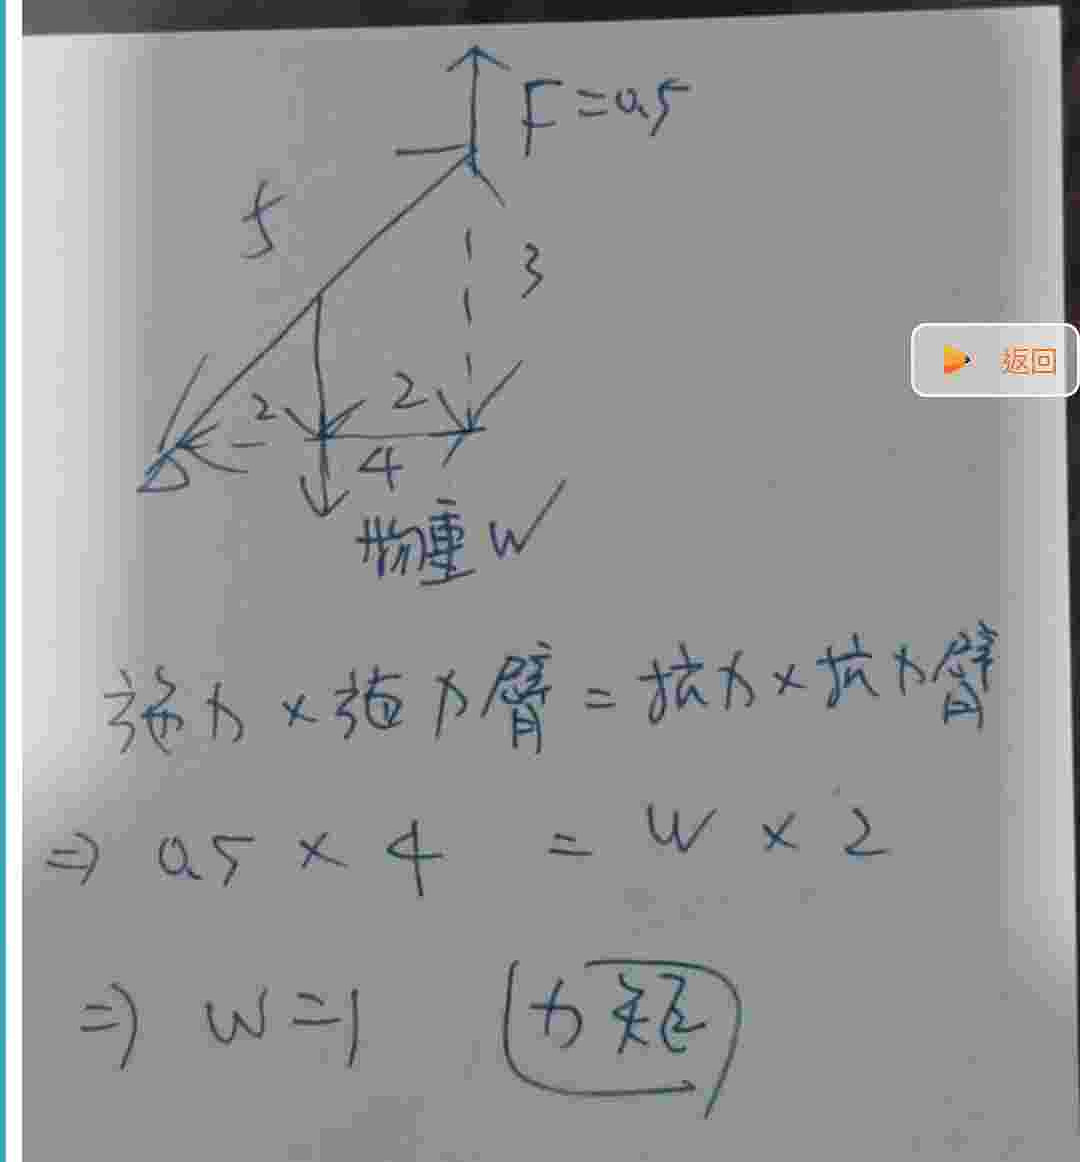 F=0.5
5
3
返回
2
2
4
物重W
施力×施力臂=抗力×抗力臂
⇒ 0.5 × 4 = W × 2
⇒ W=1 力矩